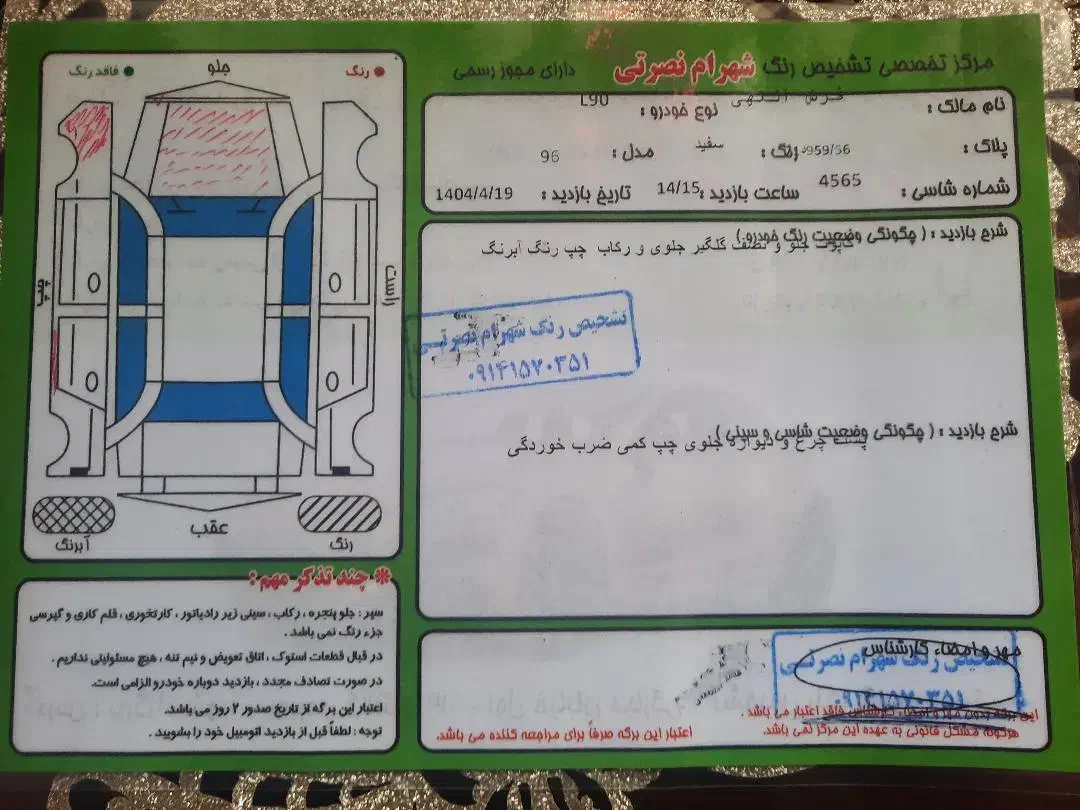 مرکز تخصصی تشخیص رنگ شهرام نصرتی دارای مجوز رسمی
نام مالک : فرض اللهی نوع خودرو : L90
پلاک : 959/56 رنگ : سفید مدل : 96
شماره شاسی : 4565 ساعت بازدید : 14/15 تاریخ بازدید : 1404/4/19
شرح بازدید : ( چگونگی وضعیت رنگ خودرو )
کاپوت جلو و نصف گلگیر جلوی و رکاب چپ رنگ آبرنگ
تشخیص رنگ شهرام نصرتی
۰۹۱۴۱۵۷۰۳۵۱
شرح بازدید : ( چگونگی وضعیت شاسی و سینی )
پشت چرغ و دیواره جلوی چپ کمی ضرب خوردگی
مهر و امضاء کارشناس
تشخیص رنگ شهرام نصرتی
۰۹۱۴۱۵۷۰۳۵۱
این برگه بدون مهر و امضاء کارشناس فاقد اعتبار می باشد .
هرگونه مشکل قانونی به عهده این مرکز نمی باشد.
اعتبار این برگه صرفاً برای مراجعه کننده می باشد.
رنگ
جلو
فاقد رنگ
راست
چپ
عقب
رنگ
آبرنگ
* چند تذکر مهم :
سپر : جلو پنجره ، رکاب ، سینی زیر رادیاتور ، کارتخوری ، قلم کاری و گیرسی
جزء رنگ نمی باشد .
در قبال قطعات استوک ، اتاق تعویض و نیم تنه ، هیچ مسئولیتی نداریم .
در صورت تصادف مجدد ، بازدید دوباره خودرو الزامی است.
اعتبار این برگه از تاریخ صدور ۲ روز می باشد.
توجه : لطفاً قبل از بازدید اتومبیل خود را بشویید .